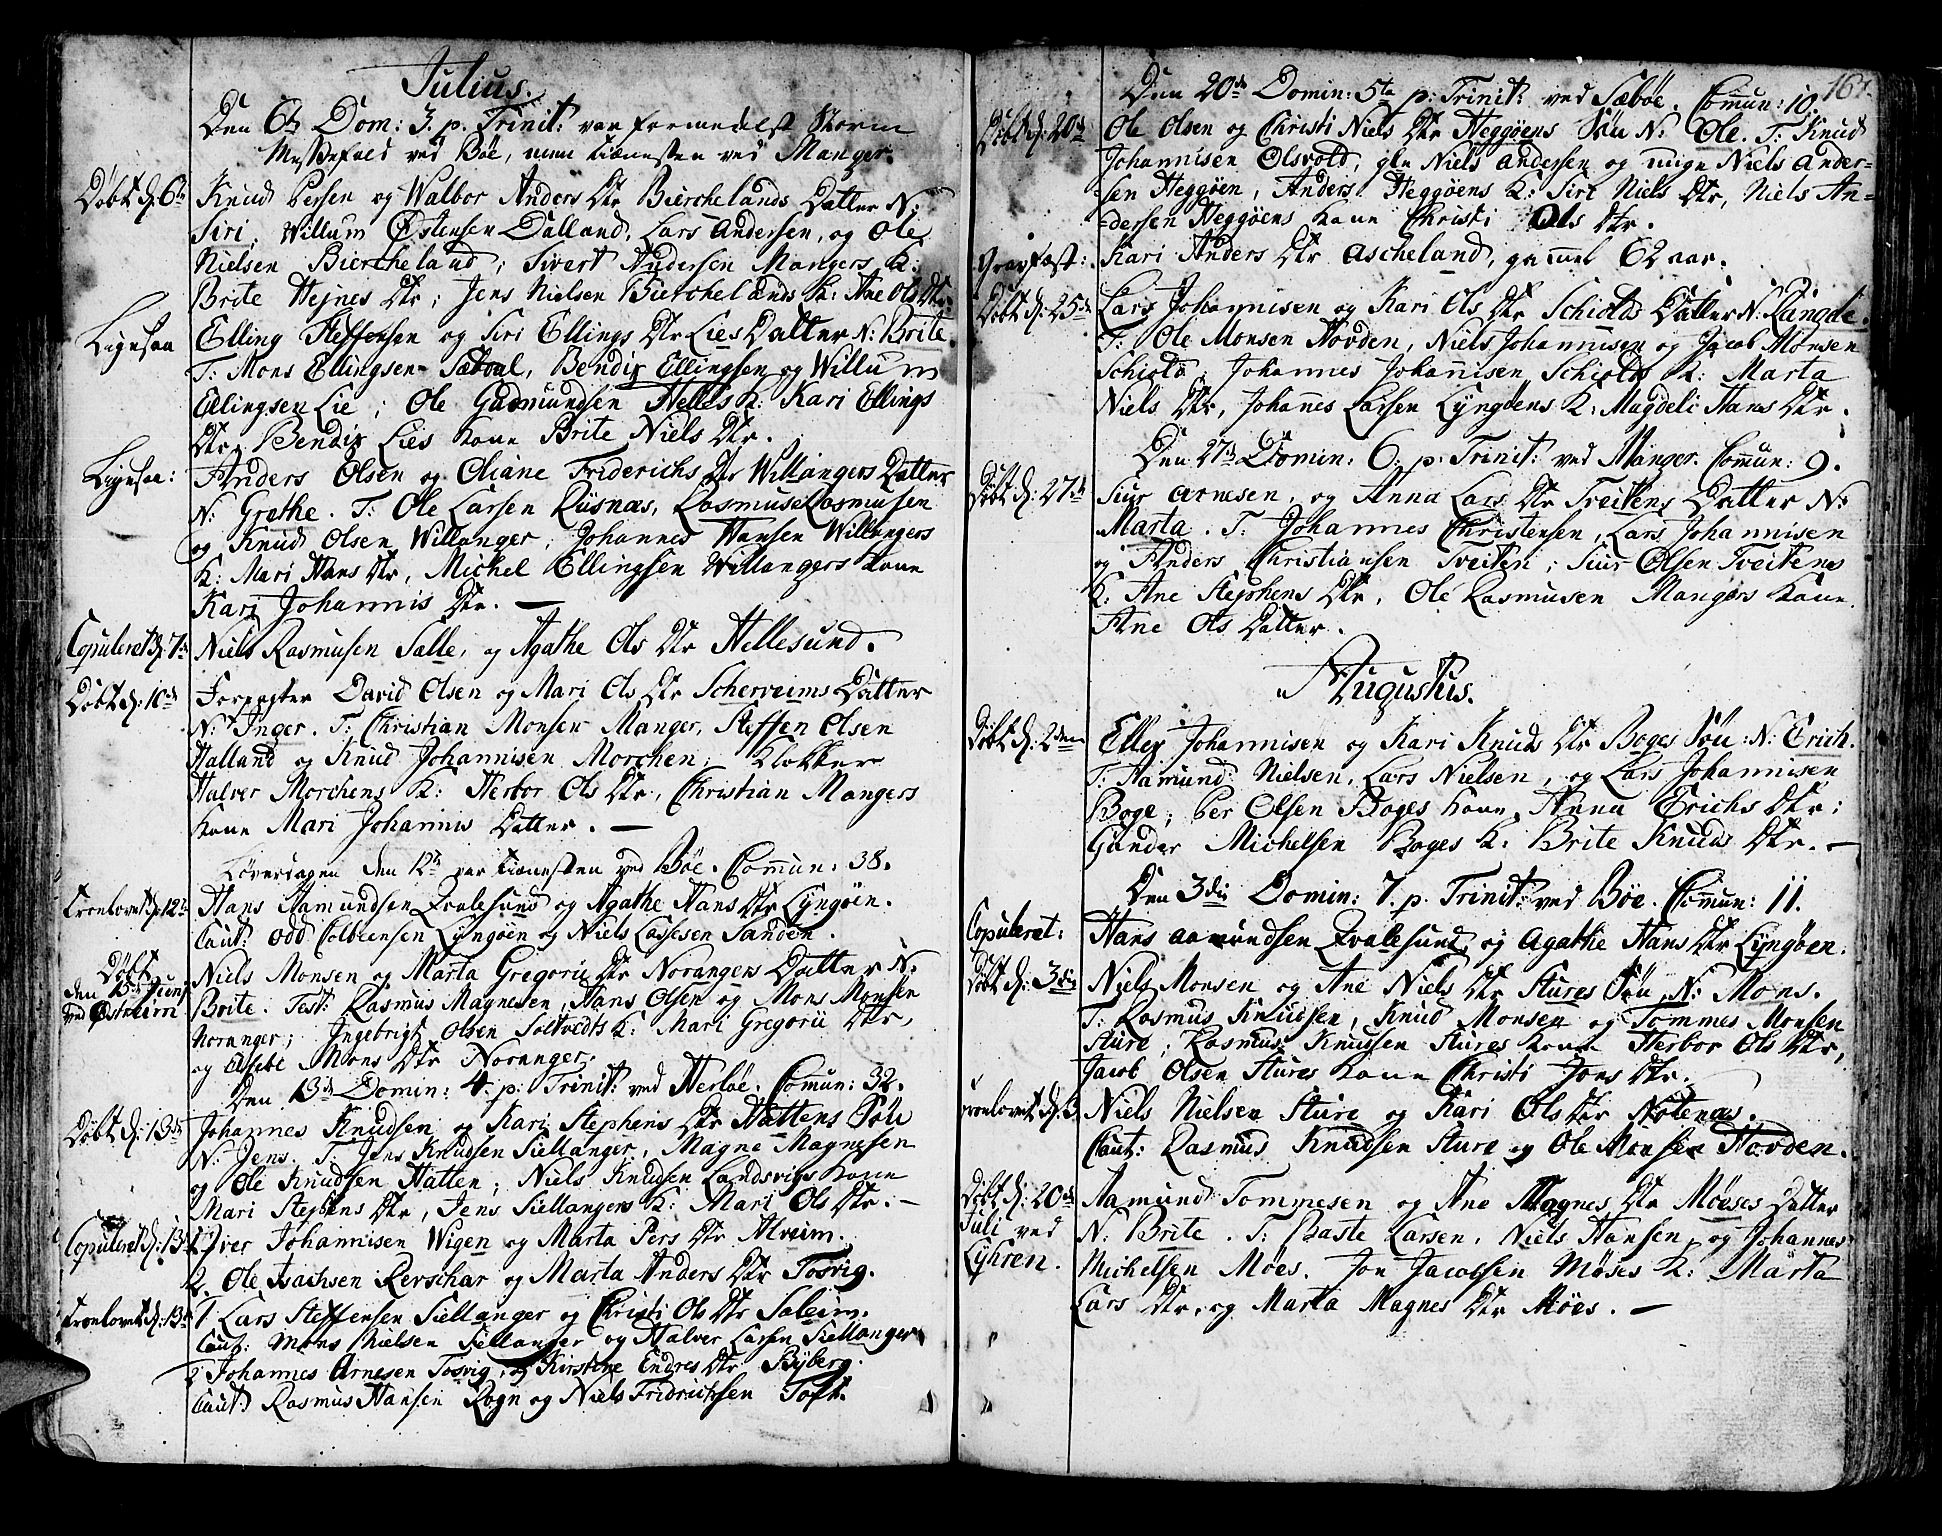 Julius.
Den 6te Dom: 3. p. Trinit: var formedelst Storm
Messefald ved Bøe, men tienesten ved Manger.
Døbt d: 6te Knud Persen og Walbor Anders Dtr Bierchelands Datter N:
Siri, Willum Østensen Dalland, Lars Andersen, og Ole
Nielsen Biercheland; Sivert Andersen Mangers K:
Brite Hejnes Dtr; Jens Nielsen Bierchelands K: Ane Ols Dtr.
Ligesaa Elling Steffensen og Siri Ellings Dtr Lies Datter N: Brite.
T: Mons Ellingsen Sætdal, Bendix Ellingsen og Willum
Ellingsen Lie; Ole Gudmundsen Helles K: Kari Ellings
Dtr, Bendix Lies Kone Brite Niels Dtr.
Ligesaa: Anders Olsen og Oliane Friderichs Dtr Willangers Datter
N: Grethe. T: Ole Larsen Risnæs, Rasmus Rasmusen
og Knud Olsen Willanger, Johannes Hansen Willangers
K: Mari Hans Dtr, Michel Ellingsen Willangers Kone
Kari Johannis Dtr. —
Copuleret d: 7de Niels Rasmusen Sælle, og Agathe Ols Dtr Hellesund.
Døbt d: 10de Forpagter David Olsen og Mari Ols Dtr Scherreims Datter
N: Inger. T: Christian Monsen Manger, Steffen Olsen
Halland og Knud Johannisen Morchen; Klokker
Halver Morchens K: Herbor Ols Dtr, Christian Mangers
Kone Mari Johannis Datter. —
Løverdagen den 12te var tienesten ved Bøe. Commun: 38.
Trolovet d: 12te Hans Aamundsen Qvalesund og Agathe Hans Dtr Lyngøen.
Caut: Odd Colbensen Lyngøen og Niels Lassesen Sanden.
Døbt den 15de Junj ved Østreim Niels Monsen og Marta Gregorii Dtr Norangers Datter N:
Brite. Test: Rasmus Magnesen, Hans Olsen og Mons Monsen
Noranger; Ingebrigt Olsen Soltvedts K: Mari Gregorii Dtr,
og Elsebe Mons Dtr Noranger.
Den 13de Domin: 4. p: Trinit: ved Herløe. Comun: 32.
Døbt d: 13de Johannes Knudsen og Kari Stephens Dtr Hattens Søn
N: Jens. T: Jens Knudsen Siellanger, Magne Magnesen
og Ole Knudsen Hatten; Niels Knudsen Landsvigs Kone
Mari Stephens Dtr, Jens Siellangers K: Mari Ols Dtr. —
Copuleret d: 13de 1. Iver Johannisen Wigen og Marta Pers Dtr Alveim.
2. Ole Isachsen Rerschar og Marta Anders Dtr Tosvig.
Trolovet d: 13de 1 Lars Steffensen Siellanger og Christi Ols Dtr Saleim.
Caut: Mons Nielsen Siellanger og Halver Larsen Siellanger
2 Johannes Arnesen Tosvig, og Kirstine Endres Dtr Byberg.
Caut: Rasmus Hansen Rogn og Niels Fridrichsen Toft.
161.
Den 20de Domin: 5ta p: Trinit: ved Sæbøe. Comun: 10.
Døbt d: 20de Ole Olsen og Christi Niels Dtr Heggøens Søn N: Ole. T: Knud
Johannisen Olsvold, gle Niels Andersen og unge Niels Ander=
=sen Heggøen, Anders Heggøens K: Siri Niels Dtr, Niels An=
=dersen Heggøens Kone Christi Ols Dtr.
Gravfæst: Kari Anders Dtr Ascheland, gammel 62 aar.
Døbt d: 25de Lars Johannisen og Kari Ols Dtr Schiolds Datter N: Rangdi.
T: Ole Monsen Hovden, Niels Johannisen og Jacob Monsen
Schiold, Johannes Johannisen Schiolds K: Marta
Niels Dtr, Johannes Larsen Lyngøens K: Magdeli Hans Dtr.
Den 27de Domin: 6. p: Trinit: ved Manger. Comun: 9.
Døbt d: 27de Siur Arnesen, og Anna Lars Dtr Tveitens Datter N:
Marta. T: Johannes Christensen, Lars Johannisen
og Anders Christiansen Tveiten; Siur Olsen Tveitens
K: Ane Stephens Dtr, Ole Rasmusen Mangers Kone
Ane Ols Datter.
Augustus.
Døbt d: 2den Eller Johannisen og Kari Knuds Dtr Boges Søn N: Erich.
T: Aamund Nielsen, Lars Nielsen, og Lars Johannisen
Boge; Per Olsen Boges Kone Anna Erichs Dtr;
Gunder Michelsen Boges K: Brite Knuds Dtr. —
Den 3die Domin: 7. p. Trinit: ved Bøe. Comun: 11.
Copuleret: Hans Aamundsen Qvalesund, og Agathe Hans Dtr Lyngøen.
Døbt d: 3die Niels Monsen og Ane Niels Dtr Stures Søn N: Mons.
T: Rasmus Knudsen, Knud Monsen og Tommes Monsen
Sture; Rasmus Knudsen Stures Kone Herbor Ols Dtr,
Jacob Olsen Stures Kone Christi Jons Dtr.
Trolovet d: 3. Niels Nielsen Sture og Kari Ols Dtr Notenæs.
Caut: Rasmus Knudsen Sture og Ole Monsen Hovden.
Døbt d: 20de Juli ved Lyhren. Aamund Tommesen og Ane Magnes Dtr Møeses Datter
N: Brite. T: Baste Larsen, Niels Hansen, og Johannes
Michelsen Møes. Jon Jacobsen Møses K: Marta
Lars Dtr, og Marta Magnes Dtr Møes. —